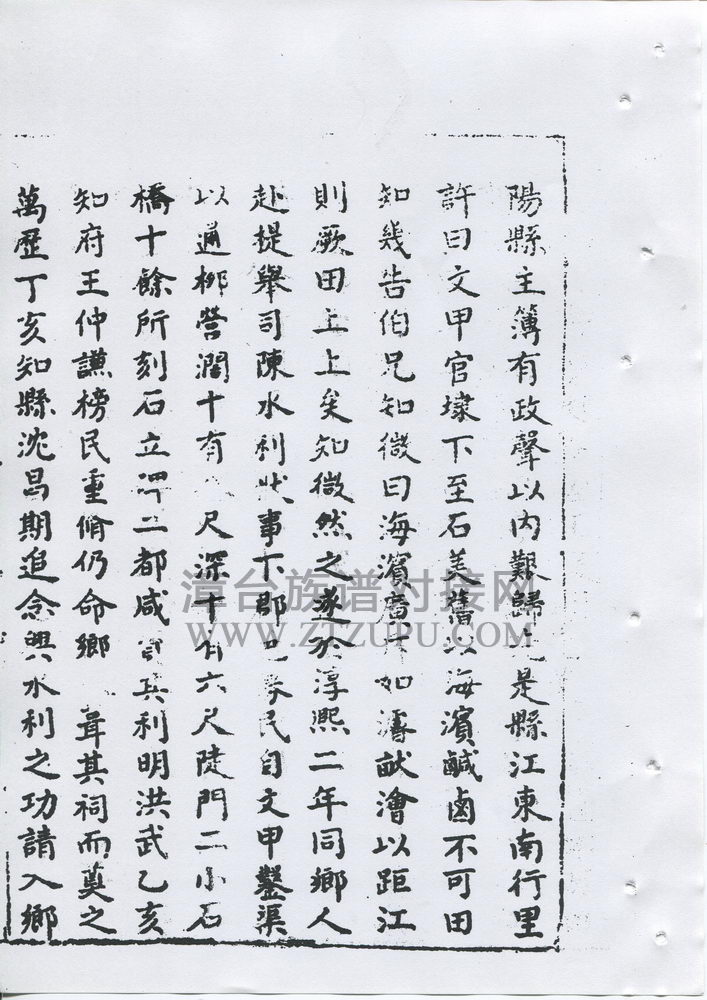 陽縣主簿有政聲以内艱歸先是縣江東南行里
許曰文甲官埭下至石美舊以海濱鹹鹵不可田
知幾告伯兄知微曰海濱廣斥如濬畎澮以距江
則厥田上上矣知微然之遂於淳熙二年同鄉人
赴提舉司陳水利狀事下郡民自文甲鑿渠
以通柳營濶十有尺深十有六尺陡門二小石
橋十餘所刻石立二都咸其利明洪武乙亥
知府王仲謙榜民重脩仍命鄉葺其祠而奠之
萬歷丁亥知縣沈昌期追念興水利之功請入鄉
漳台族谱对接网
WWW.ZTZUPU.COM